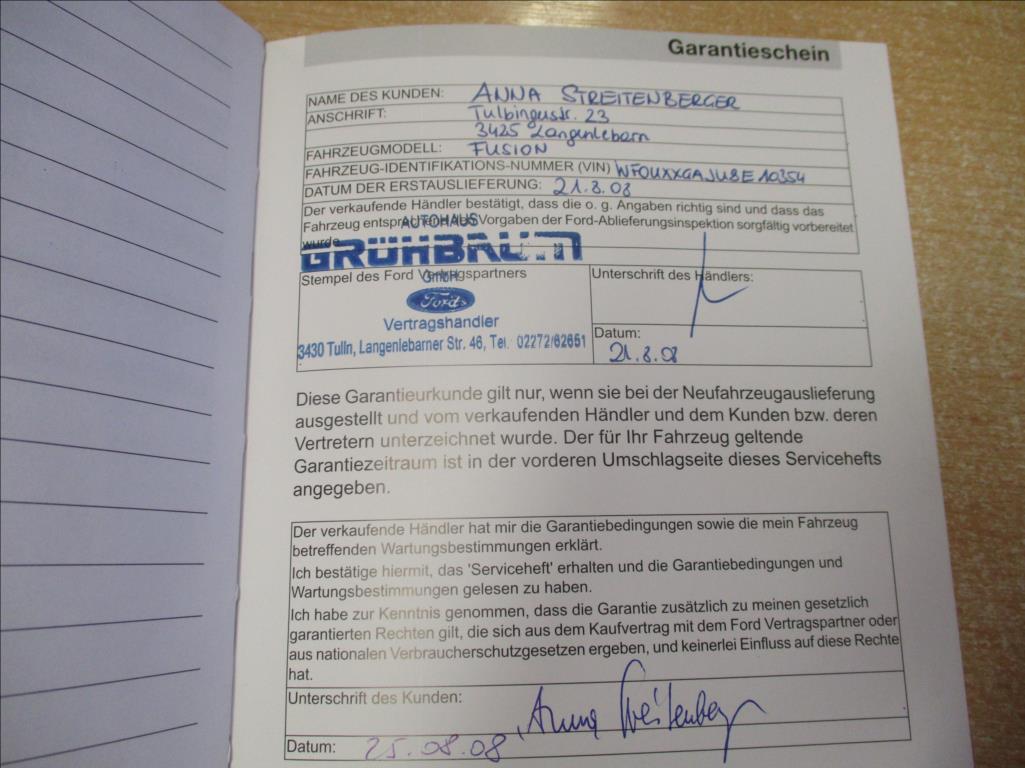 Garantieschein
NAME DES KUNDEN: ANNA STREITENBERGER
ANSCHRIFT: Tulbingustr. 23
3425 Langenlebarn
FAHRZEUGMODELL: FUSION
FAHRZEUG-IDENTIFIKATIONS-NUMMER (VIN) WF0UXXGAJU8E10354
DATUM DER ERSTAUSLIEFERUNG: 21.8.08
Der verkaufende Händler bestätigt, dass die o. g. Angaben richtig sind und dass das
Fahrzeug entsprechend Vorgaben der Ford-Ablieferungsinspektion sorgfältig vorbereitet
wurde
AUTOHAUS
GRÜHBAUM
GmbH
Stempel des Ford Vertragspartners
Unterschrift des Händlers:
Ford
Vertragshändler
3430 Tulln, Langenlebarner Str. 46, Tel. 02272/62651
Datum:
21.8.08
Diese Garantieurkunde gilt nur, wenn sie bei der Neufahrzeugauslieferung
ausgestellt und vom verkaufenden Händler und dem Kunden bzw. deren
Vertretern unterzeichnet wurde. Der für Ihr Fahrzeug geltende
Garantiezeitraum ist in der vorderen Umschlagseite dieses Servicehefts
angegeben.
Der verkaufende Händler hat mir die Garantiebedingungen sowie die mein Fahrzeug
betreffenden Wartungsbestimmungen erklärt.
Ich bestätige hiermit, das 'Serviceheft' erhalten und die Garantiebedingungen und
Wartungsbestimmungen gelesen zu haben.
Ich habe zur Kenntnis genommen, dass die Garantie zusätzlich zu meinen gesetzlich
garantierten Rechten gilt, die sich aus dem Kaufvertrag mit dem Ford Vertragspartner oder
aus nationalen Verbraucherschutzgesetzen ergeben, und keinerlei Einfluss auf diese Rechte
hat.
Unterschrift des Kunden: Anna Streitenberger
Datum: 25.08.08